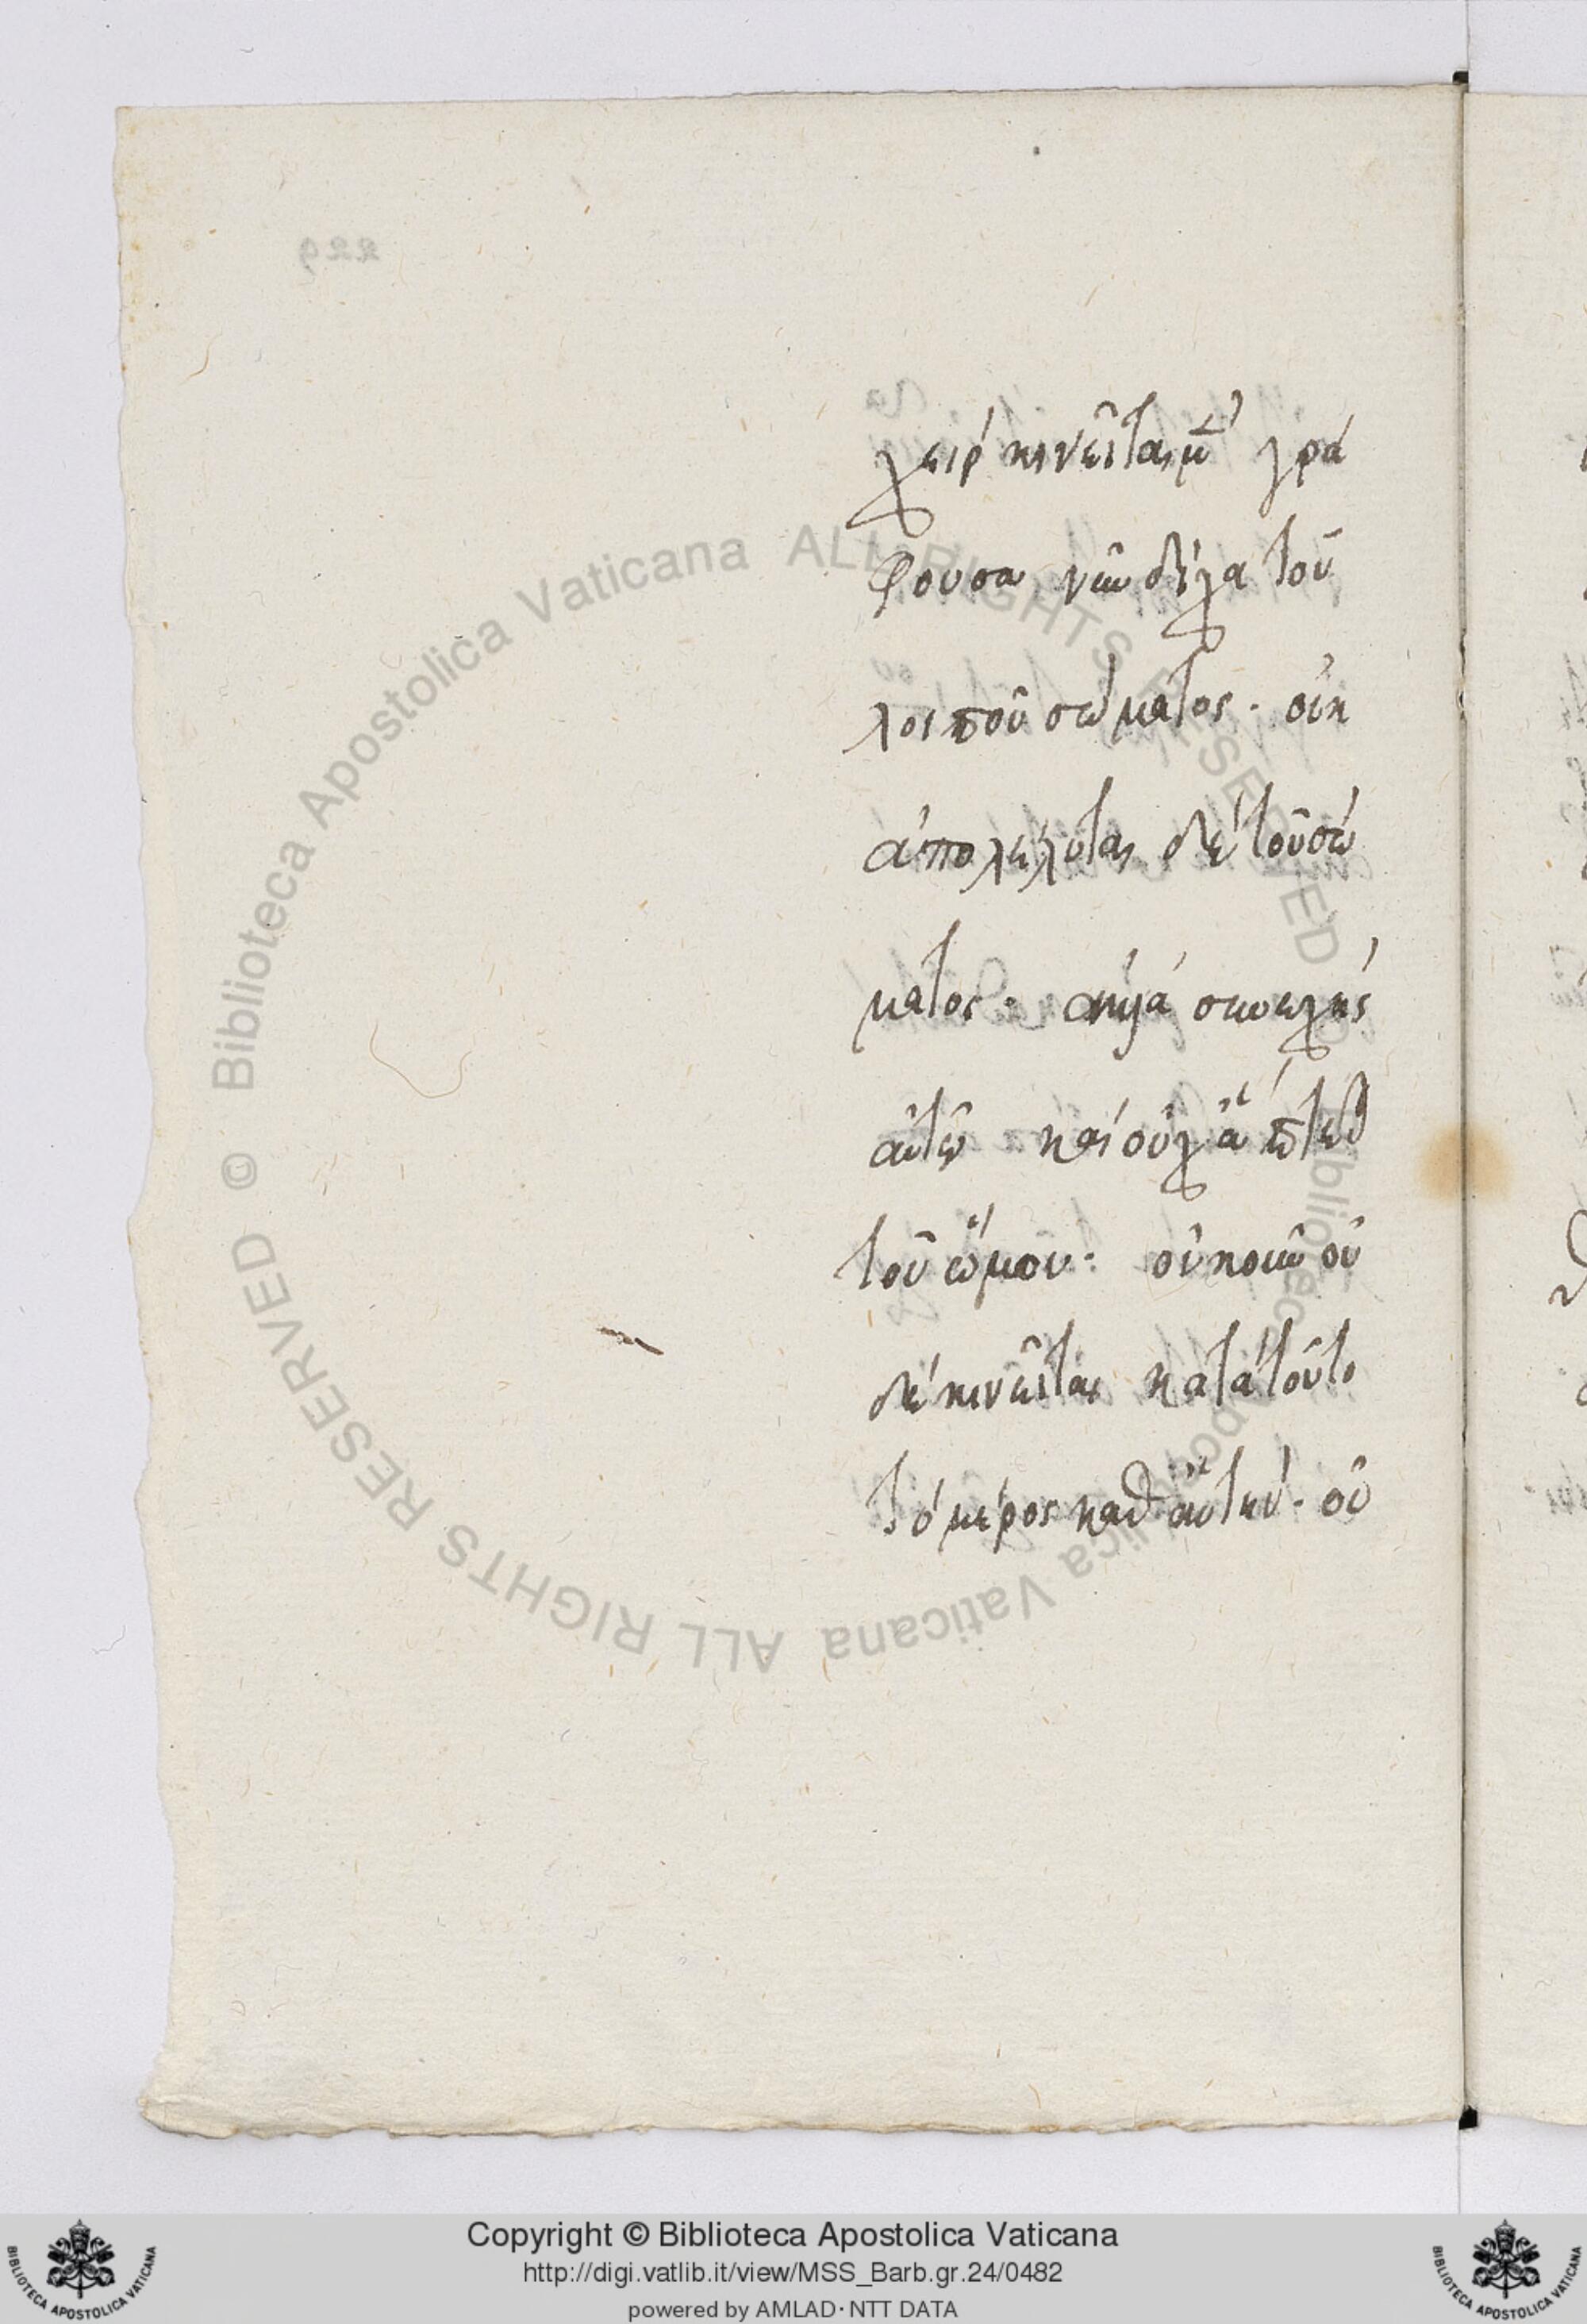 χεὶρ κινεῖται μὲν γρά
φουσα νῦν δίχα τοῦ
λοιποῦ σώματος· οὐκ
ἀπολέλυται δὲ τοῦ σώ
ματος· ἀλλὰ συνεχὴς
αὐτῶ καὶ οὐχ
τοῦ ὤμου· οὐκοῦν οὐ
δὲ κινεῖται κατὰ τοῦτο
τὸ μέρος καθ' αὑτήν· οὐ
229
© Biblioteca Apostolica Vaticana ALL RIGHTS RESERVED
© Biblioteca Apostolica Vaticana ALL RIGHTS RESERVED
Copyright © Biblioteca Apostolica Vaticana
http://digi.vatlib.it/view/MSS_Barb.gr.24/0482
powered by AMLAD · NTT DATA
BIBLIOTECA APOSTOLICA VATICANA
BIBLIOTECA APOSTOLICA VATICANA